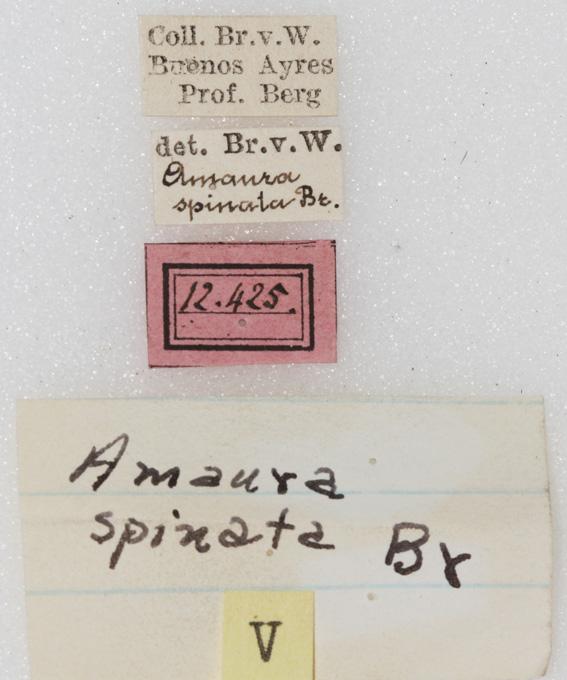 Coll. Br.v.W.
Buenos Ayres
Prof. Berg
det. Br.v.W.
Amaura
spinata Br.
12.425.
Amaura
spinata Br
V